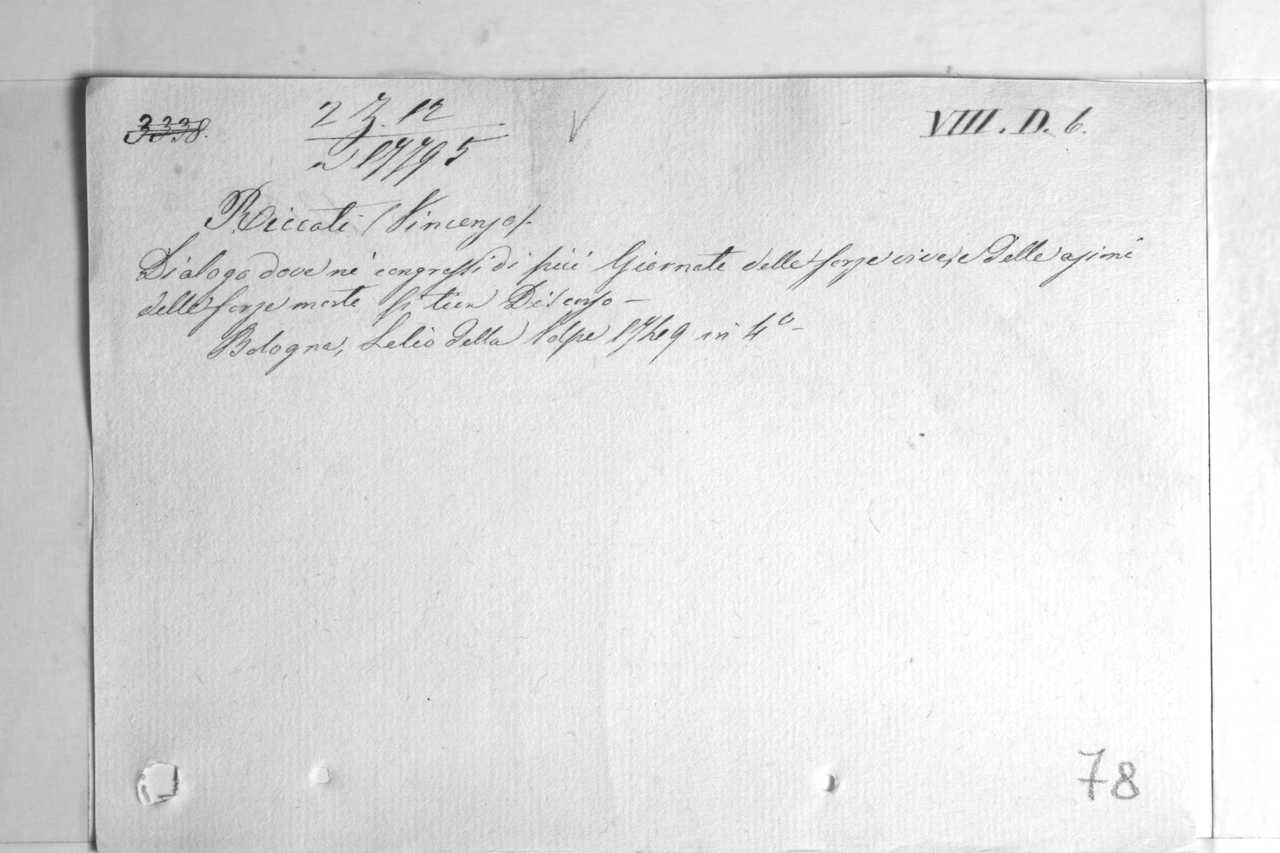 3338.
2 Z. 12
n 17795
V
VIII. D. 6.
Riccati (Vincenzo).
Dialogo dove ne' congressi di più Giornate delle forze vive, e delle azioni
delle forze morte si tien Discorso –
Bologna, Lelio della Volpe 1749 in 4º –
78